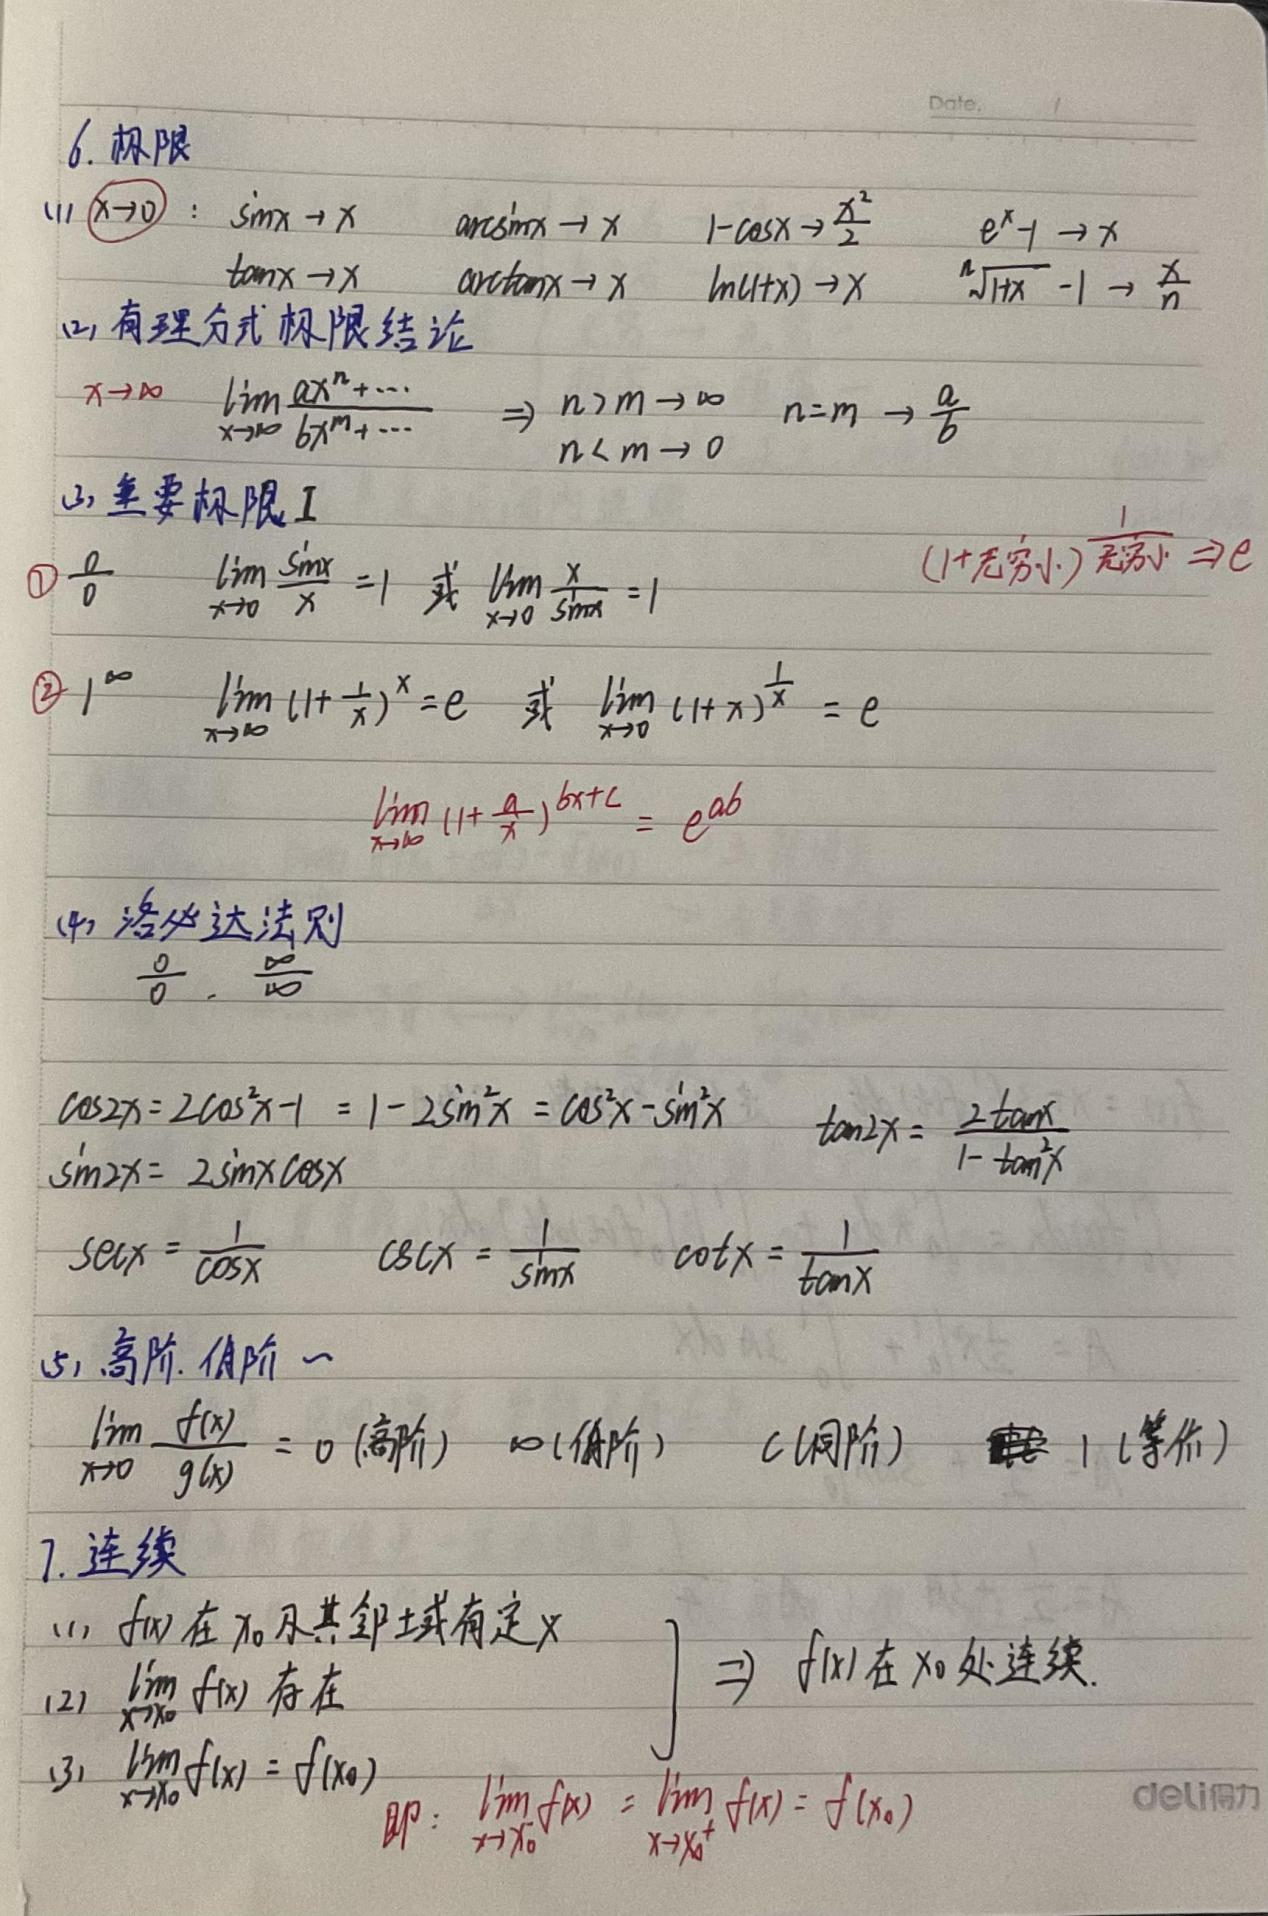 Date. /
6. 极限
(1) x→0 : sinx → x arcsinx → x 1-cosx → x²/2 eˣ-1 → x
tanx → x arctanx → x ln(1+x) → x ⁿ√(1+x) -1 → x/n
(2) 有理分式极限结论
x→∞ lim x→∞ (axⁿ+…)/(bxᵐ+…) ⇒ n>m → ∞ n=m → a/b
n<m → 0
(3) 重要极限I
(1+无穷小)^(1/无穷小) ⇒ e
① 0/0 lim x→0 sinx/x = 1 或 lim x→0 x/sinx = 1
② 1^∞ lim x→∞ (1+1/x)^x = e 或 lim x→0 (1+x)^(1/x) = e
lim x→∞ (1+a/x)^(bx+c) = e^(ab)
(4) 洛必达法则
0/0 . ∞/∞
cos2x = 2cos²x-1 = 1-2sin²x = cos²x-sin²x tan2x = 2tanx/(1-tan²x)
sin2x = 2sinxcosx
secx = 1/cosx cscx = 1/sinx cotx = 1/tanx
(5) 高阶. 低阶~
lim x→0 f(x)/g(x) = 0 (高阶) ∞ (低阶) C (同阶) 1 (等价)
7. 连续
(1) f(x) 在 x₀ 及其邻域有定义
(2) lim x→x₀ f(x) 存在
⇒ f(x) 在 x₀ 处连续.
(3) lim x→x₀ f(x) = f(x₀)
即: lim x→x₀⁻ f(x) = lim x→x₀⁺ f(x) = f(x₀)
deli得力